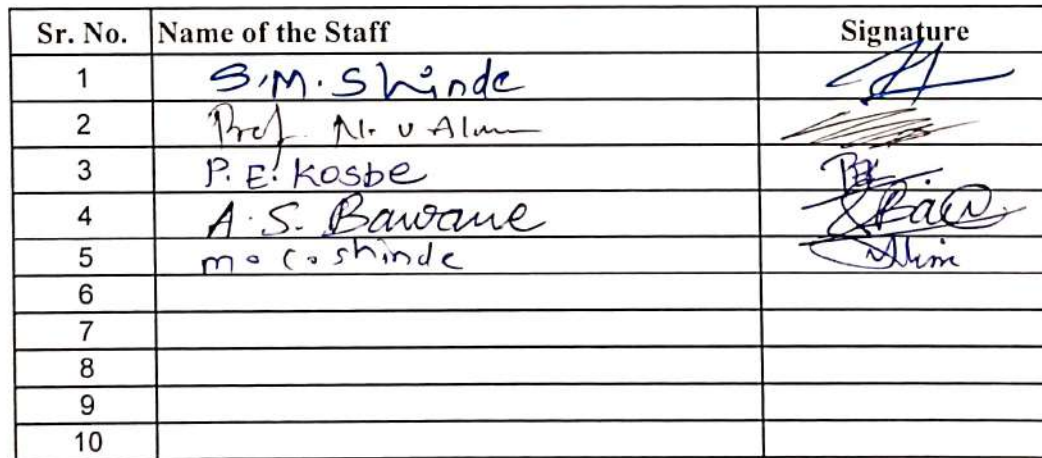 Sr. No. Name of the Staff Signature
1 S.M. Shinde
2 Prof. N. V
3 P. E. Kosbe
4 A. S. Bawane
5 m. C. shinde
6
7
8
9
10